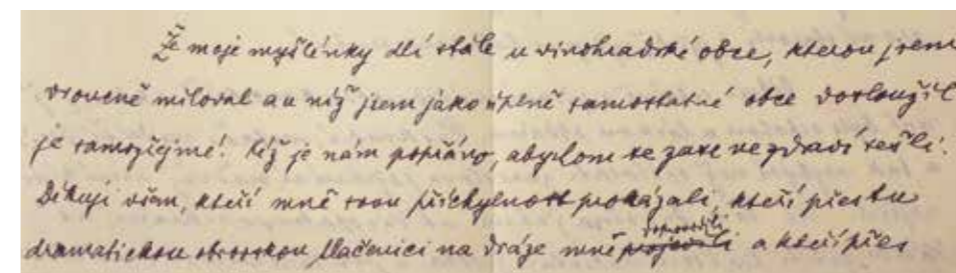 Že moje myšlénky dlí stále u vinohradské obce, kterou jsem
vroucně miloval a u níž jsem jako úplně samostatné obce dosloužil
je samozřejmé. Kéž je nám popřáno, abychom se zase ve zdraví sešli.
Děkuji všem, kteří mně svou příchylnost prokázali, kteří přes tu
dramatickou obrovskou tlačenici na dráze mně doprovodili a kteří přes